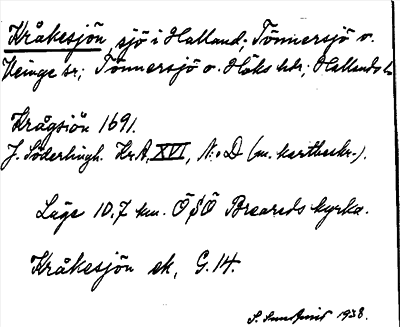 Kråkesjön, sjö i Halland; Tönnersjö o.
Veinge sr; Tönnersjö o. Höks hdr; Hallands l.
Krågsiön 1691.
J. Söderlingh. Kr.A. XVI, N:o D (m. kartbeskr.).
Läge 10,7 km. ÖSÖ Breareds kyrka.
Kråkesjön ek, G.14.
S. Sundqvist 1938.